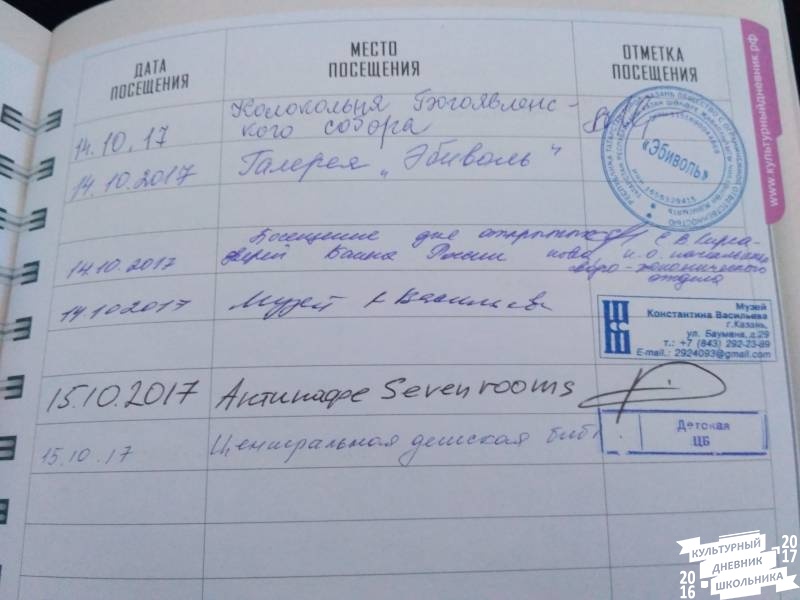 ДАТА ПОСЕЩЕНИЯ
МЕСТО ПОСЕЩЕНИЯ
ОТМЕТКА ПОСЕЩЕНИЯ
14.10.17
Колокольня Богоявленс-
кого собора
14.10.2017
Галерея „Эбиволь“
«Эбиволь»
14.10.2017
Посещение дне открытых
дверей Банка России
Е.В.
и.о. начальника
экономического
отдела
14.10.2017
Музей К Васильева
Музей
Константина Васильева
г.Казань,
ул. Баумана, д.29
т.: +7 (843) 292-23-89
E-mail.: 2924093@gmail.com
15.10.2017
Антикафе Sevenrooms
15.10.17
Центральная детская биб
Детская
ЦБ
www.культурныйдневник.рф
КУЛЬТУРНЫЙ
ДНЕВНИК
ШКОЛЬНИКА
2016
2017